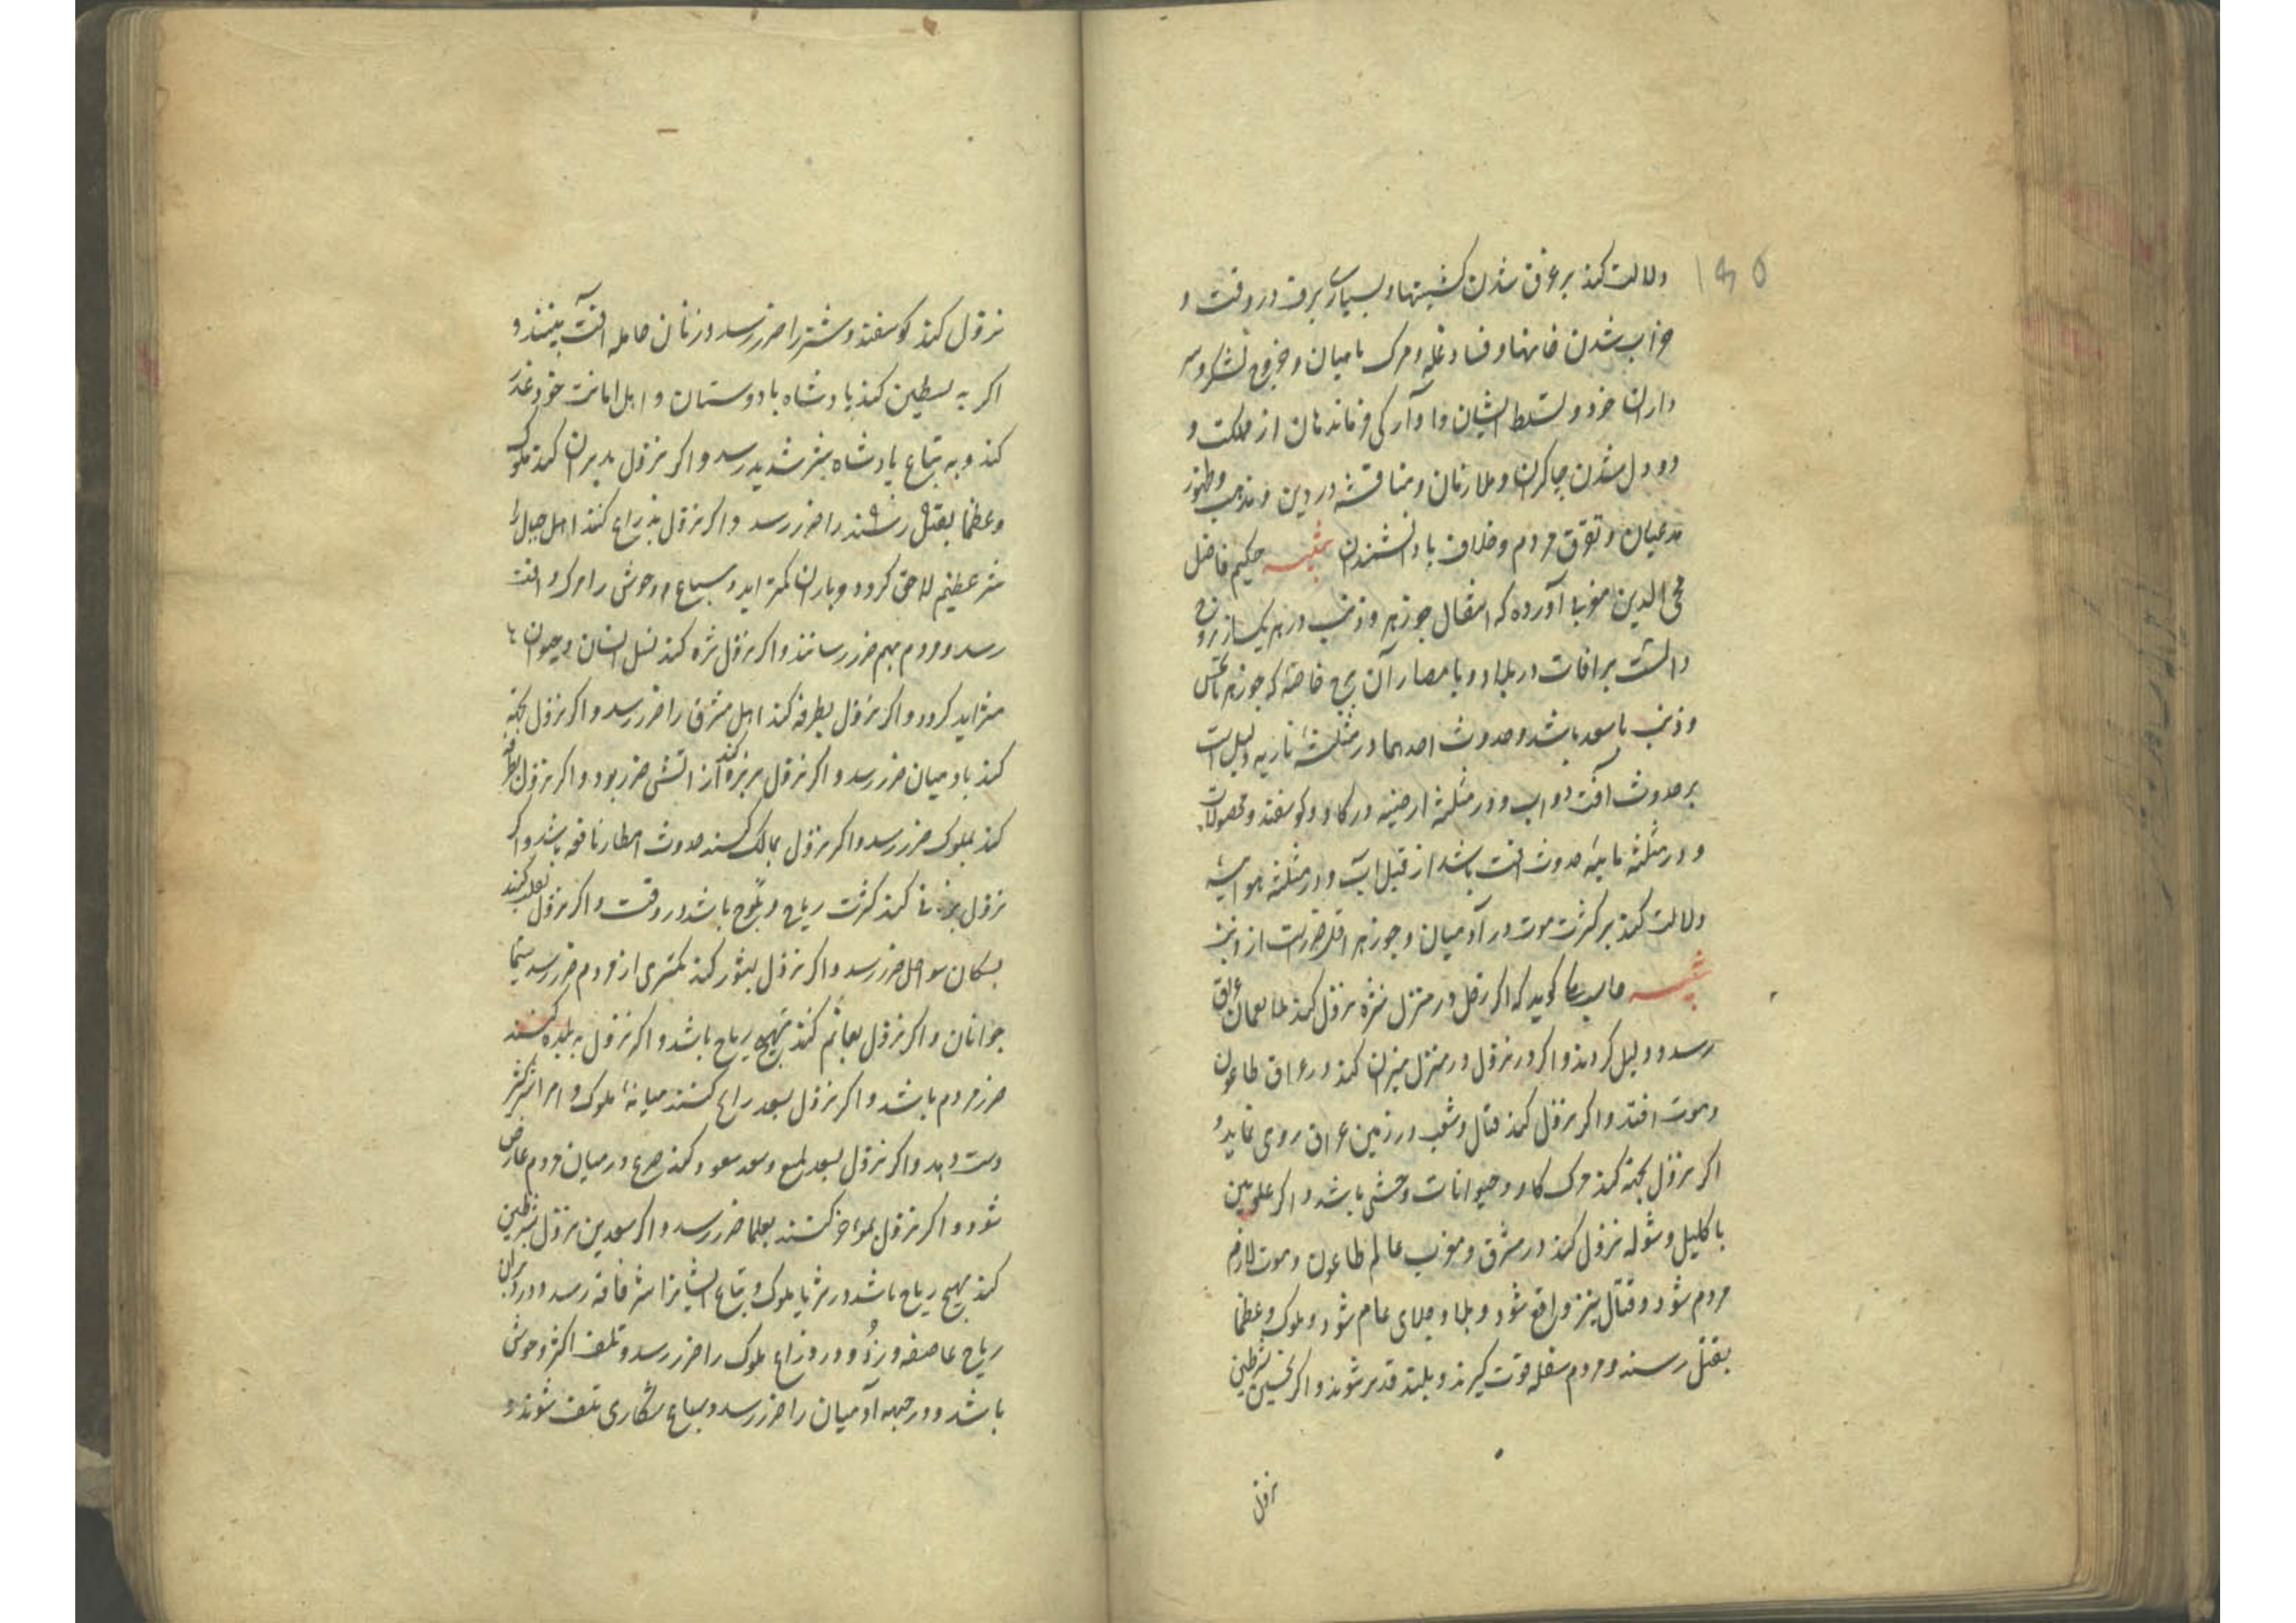 دلالت کند بر غرق شدن کشتیها و بسیاری برف در وقت و
خراب شدن خانها و فساد غله و مرک ماهیان و خروج لشکر و سر
داران خرد و تسلط ایشان و اوارکی فرماندهان از مملکت و
دو دل شدن چاکران و ملازمان و مناقشه در دین و مذهب و ظهور
مدعیان و تفرق مردم و خلاف با دانشمندان تنبیه حکیم فاضل
محی الدین مغربی آورده که انتقال جوزهر و ذنب در هر یک از بروج
دالست بر افات در بلاد و بامصار آن برج خاصه که جوزهر با نحس
و ذنب با سعد باشد و حدوث احدهما در مثلثهٔ ناریه دلیل است
بر حدوث آفت دواب و در مثلثه ارضیه در کاو و کوسفند و محصولات
و در مثلثه مائیه حدوث افت باشد از قبل آب و در مثلثه هوائیه
دلالت کند بر کثرت موت در آدمیان و جوزهر اقل ضررست از ذنب
تنبیه کوید که اکر زحل در منزل نثره نزول کند عراق
رسد و دلیل کردند و اکر در نزول در منزل میزان کند در عراق طاعون
و موت افتد و اکر نزول کند قتال و شغب در زمین عراق روی نماید و
اکر نزول بجبهه کند مرک کاو و حیوانات وحشی باشد و اکر علویین
باکلیل و شوله نزول کند در مشرق و مغرب عالم طاعون و موت لازم
مردم شود و قتال نیز واقع شود و بلا و جلای عام شود و ملوک و عظما
بقتل رسند و مردم سفله قوت کیرند و بلند قدر شوند و اکر نحسین بشرطین
نزول
نزول کند کوسفند و شتر را ضرر رسد و زنان حامله آفت بینند و
اکر به بطین کند پادشاه با دوستان و اهل امانت خود غدر
کند و به تباع پادشاه شر شدید رسد و اکر نزول بدبران کند ملوک
و عظما بقتل رسند را ضرر رسد و اکر نزول بذراع کنند اهل جبال را
شر عظیم لاحق کردد و باران کمتر اید و سباع و وحوش را مرک و افت
رسد و مردم بهم ضرر رسانند و اکر نزول نثره کند نسل انسان و حیوان
متزاید کردد و اکر نزول بطرفه کند اهل مشرق را ضرر رسد و اکر نزول بجبهه
کند بادمیان ضرر رسد و اکر نزول بزبره کند از اتش ضرر بود و اکر نزول بصرفه
کند بملوک ضرر رسد و اکر نزول بسماک کنند حدوث امطار نافعه باشد و اکر
نزول کند کثرت ریاح و ثلوج باشد در وقت و اکر نزول
بسکان سواحل ضرر رسد و اکر نزول کند کمتری از مردم ضرر رسد سیما
جوانان و اکر نزول بعائم کند تهیج ریاح باشد و اکر نزول به بلده کنند
ضرر مردم باشد و اکر نزول بسعد ذابح کنند میانهٔ ملوک و امرا شر
دست دهد و اکر نزول بسعد بلع و سعد سعود کند صرع در میان مردم عارض
شود و اکر نزول بمؤخر کنند بعلما ضرر رسد و اکر سعدین نزول بشرطین
کند تهیج ریاح باشد در ثریا ملوک و تباع ایشانرا شر فاقه رسد و در دبران
ریاح عاصفه وزد و در ذراع ملوک را ضرر رسد و تلف اکثر وحوش
باشد و در جبهه آدمیان را ضرر رسد و سباع شکاری تلف شوند و